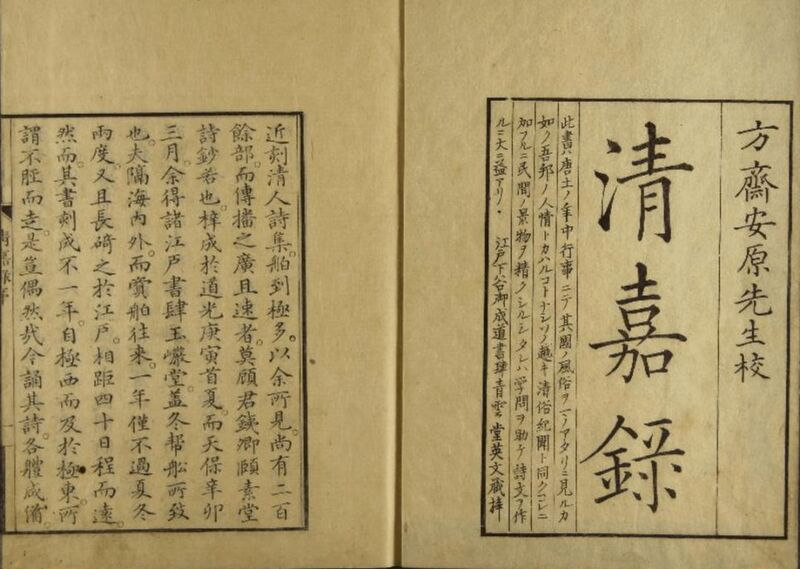 方齋安原先生校
清嘉錄
此書ハ唐土ノ年中行事ニテ其國ノ風俗ヲマノアタリニ見ルカ
如ク吾邦ノ人情トカハルコトナシソノ趣キ清俗紀聞ト同クコレニ
加フルニ民間ノ景物ヲ精クシルシタレハ学問ヲ助ケ詩文ヲ作
ルニ大ニ益アリ
江戸下谷御成道書肆青雲堂英文藏梓
近刻清人詩集舶到極多以余所見尚有二百
餘部而傳播之廣且速者莫顧君鐵卿頤素堂
詩鈔若也梓成於道光庚寅首夏而天保辛卯
三月余得諸江戸書肆玉巖堂蓋冬幇船所致
也夫隔海內外而賣舶往來一年僅不過夏冬
兩度又且長碕之於江戸相距四十日程而遠
然而其書刻成不一年自極西而及於極東所
謂不脛而走是豈偶然哉今誦其詩各體咸備
清嘉錄序
一